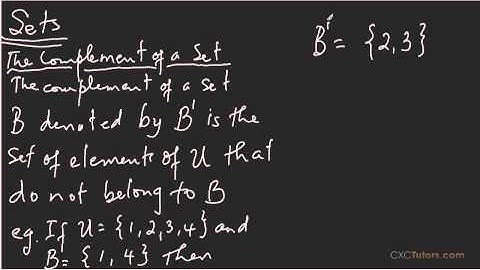 Sets
The Complement of a Set
The complement of a set
B denoted by B' is the
set of elements of U that
do not belong to B
eg. If U = {1,2,3,4} and
B = {1, 4} then
B' = {2,3}
CXCTutors.com